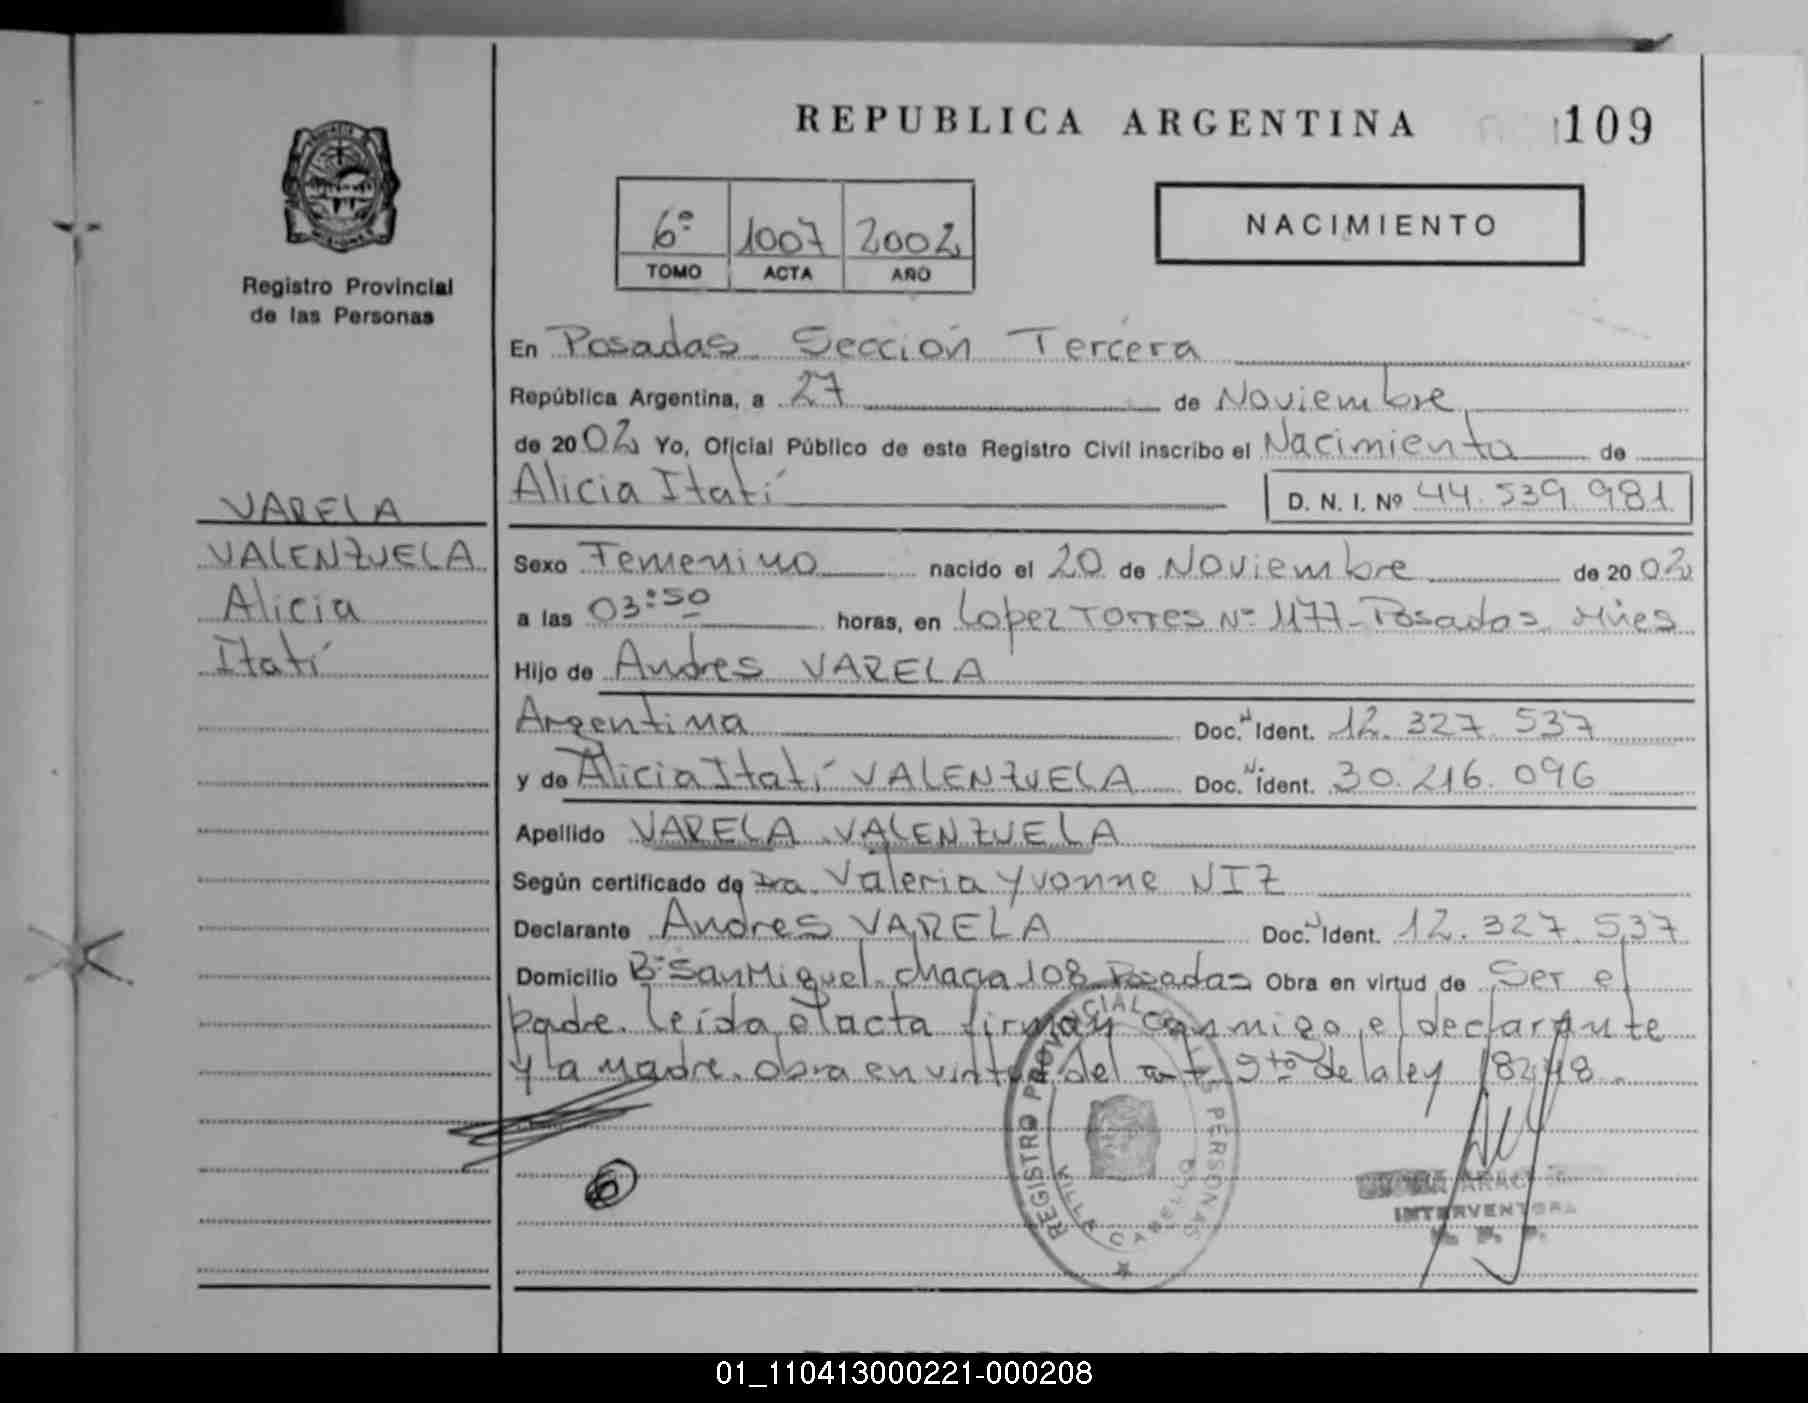 REPUBLICA ARGENTINA 109
6º 1007 2002
TOMO ACTA AÑO
NACIMIENTO
MISIONES
Registro Provincial
de las Personas
VARELA
VALENZUELA
Alicia
Itatí
En Posadas Sección Tercera
República Argentina, a 27 de Noviembre
de 2002 Yo, Oficial Público de este Registro Civil inscribo el Nacimiento de
Alicia Itatí D. N. I. Nº 44.539.981
Sexo Femenino nacido el 20 de Noviembre de 2002
a las 03:50 horas, en Lopez Torres Nº 1177-Posadas Mnes
Hijo de Andres VARELA
Argentina Doc. N Ident. 12.327.537
y de Alicia Itatí VALENZUELA Doc. N. Ident. 30.216.096
Apellido VARELA VALENZUELA
Según certificado de Dra. Valeria Yvonne NIZ
Declarante Andres VARELA Doc. N Ident. 12.327.537
Domicilio Bº San Miguel chacra 108 Posadas Obra en virtud de Ser el
padre. leída el acta firman conmigo el declarante
y la madre. obra en virtud del art 9no de la ley 18248.
REGISTRO PROVINCIAL DE LAS PERSONAS
VILLA CABELLO
INTERVENTORA
R. P. P.
01_110413000221-000208